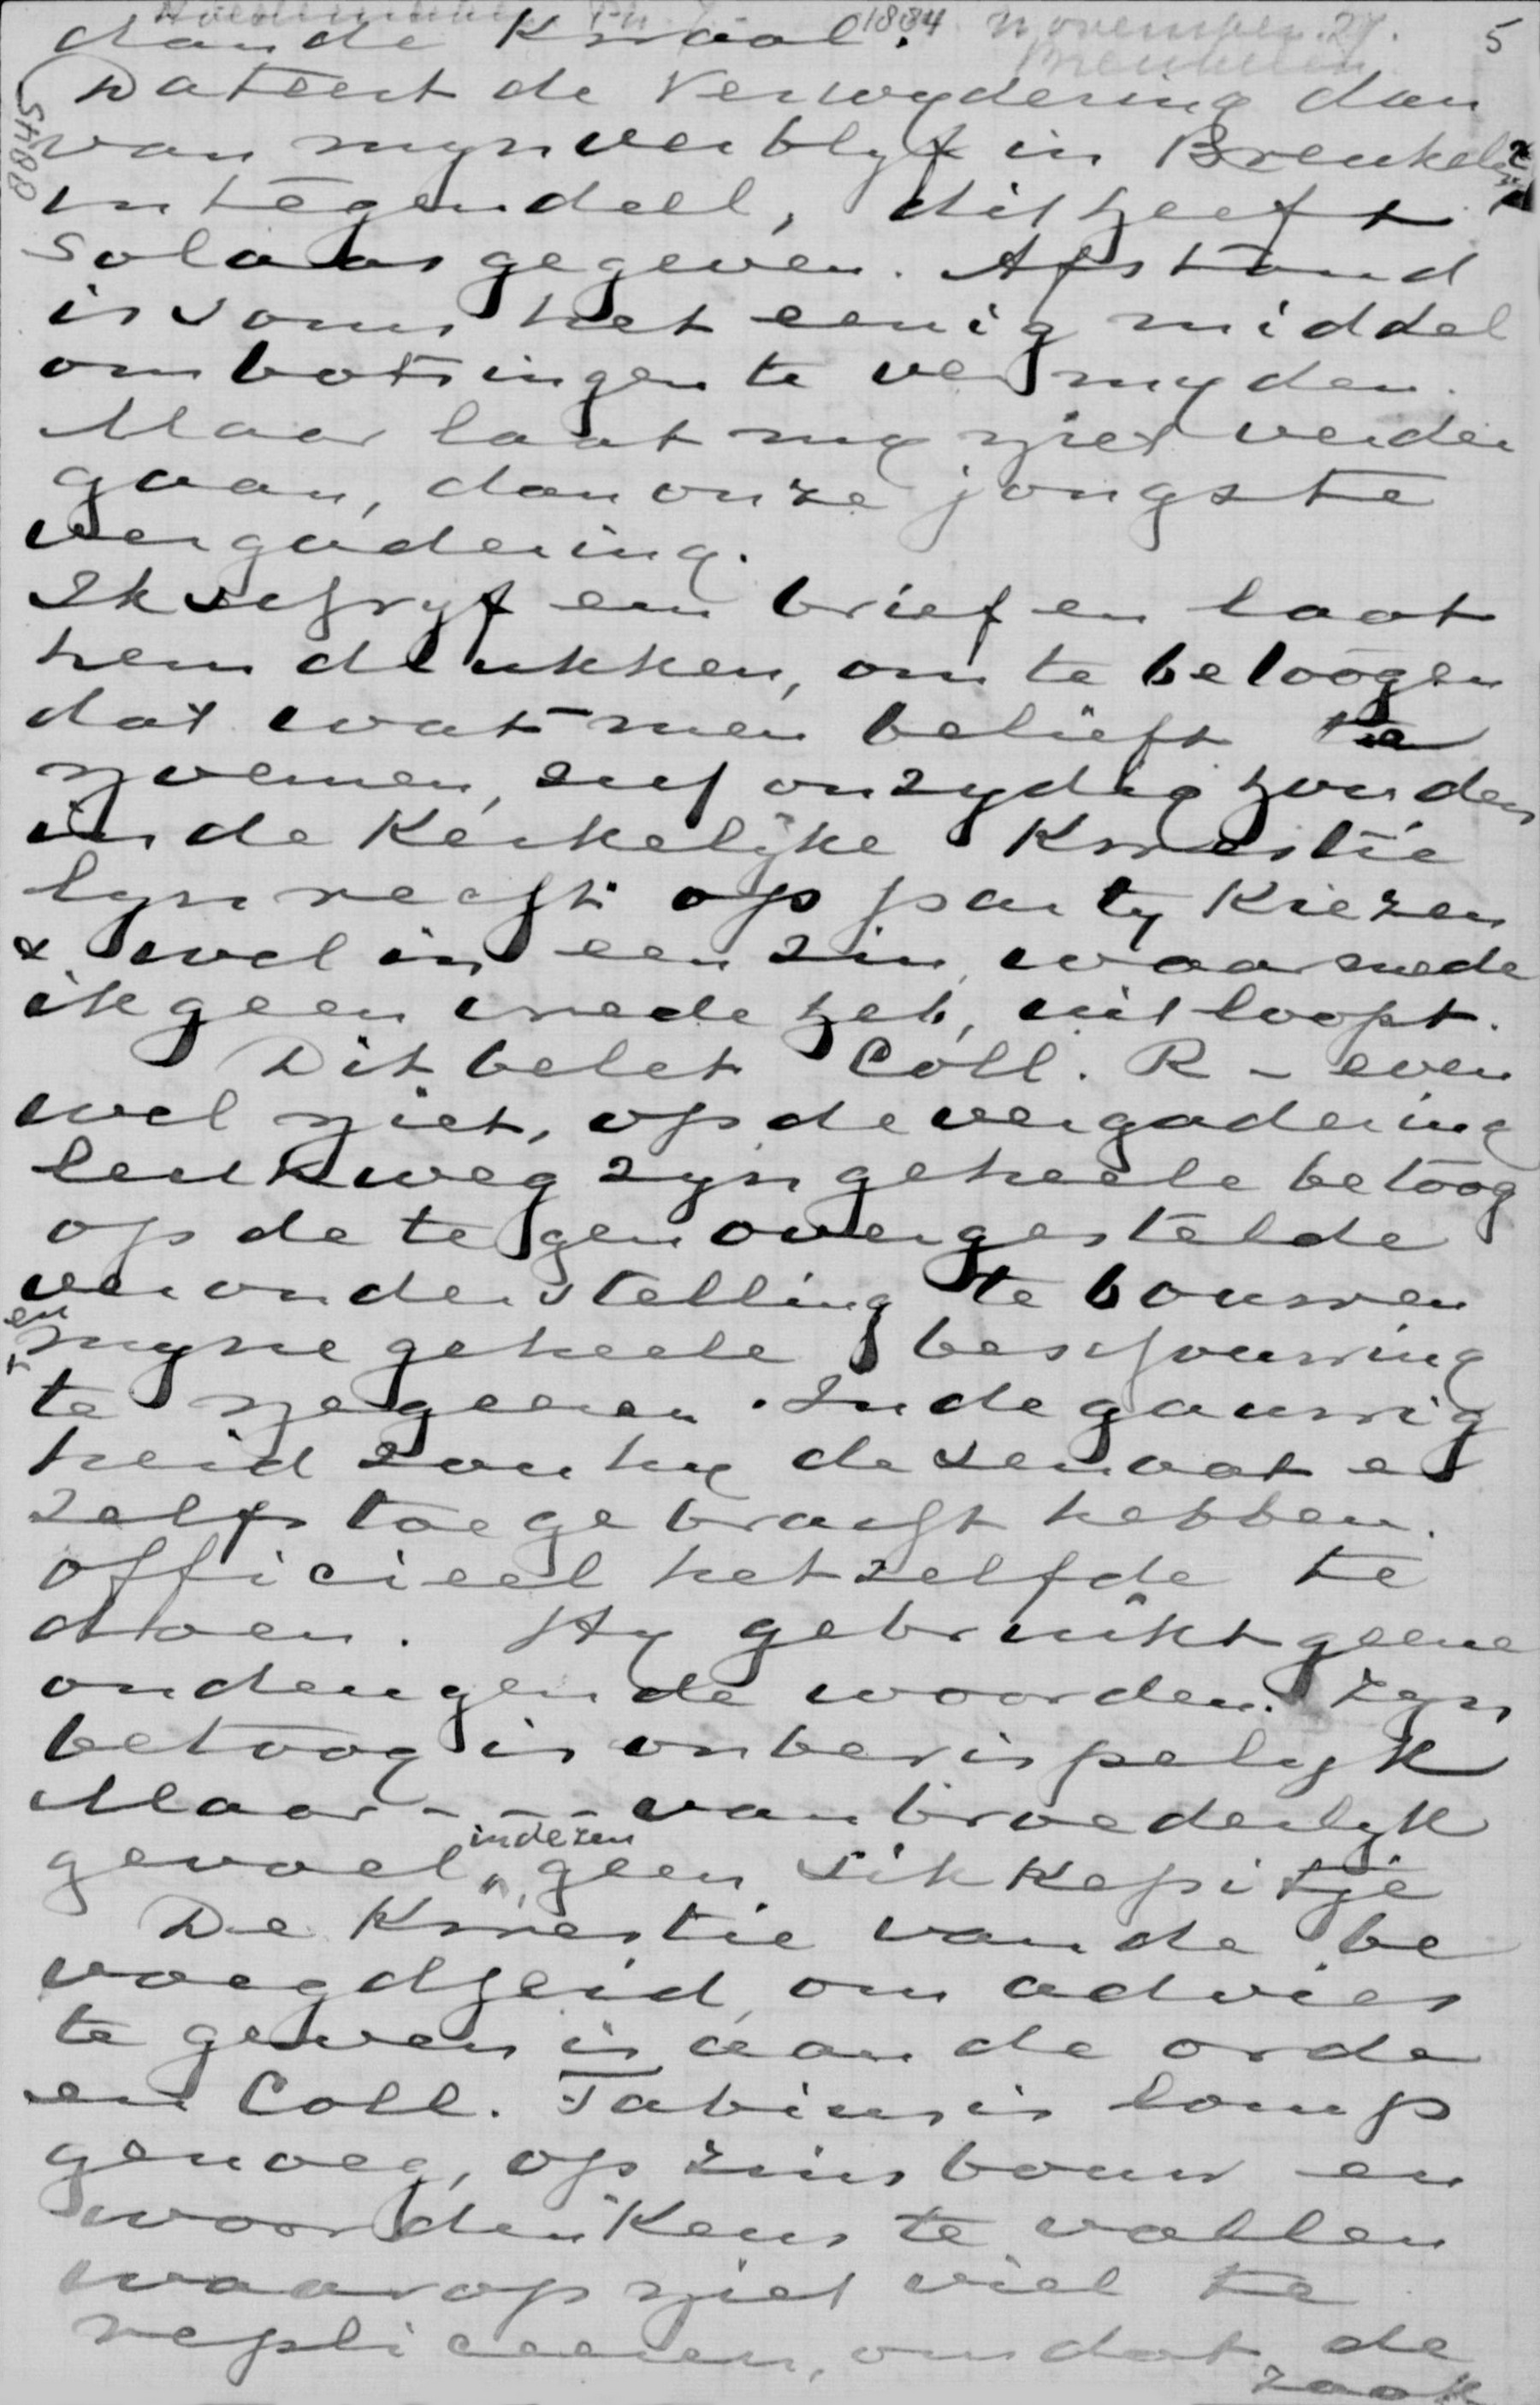 Hoedemaker Ph. J. 1884. November. 27. 5
Breukelen
dan de Kwaal.
Dateert de Verwydering dan
van myn verblyf in Breukelen?
integendeel, dit heeft
solaas gegeven. Afstand
is soms het eenig middel
om botsingen te vermyden.
Maar laat my niet verder
gaan, dan onze jongste
vergadering.
Ik schryf een brief en laat
hem drukken, om te betoogen
dat wat men belieft te
noemen, zich onzydig houden
in de Kerkelijke Kwestie
lynrecht op party Kiezen
& wel in een zin, waarmede
ik geen vrede heb, uitloopt.
Dit belet Coll. R - even
wel niet, op de vergadering
leukweg zyn geheele betoog
op de tegenovergestelde
veronderstelling te bouwen
en myne geheele beschouwing
te negeeren. In de gauwig
heid zou hy de senaat er
zelfs toe gebracht hebben.
officieel hetzelfde te
doen. Hy gebruikt geene
ondeugende woorden. Zyn
betoog is onberispelyk
Maar - - - - van broederlyk
gevoel, in dezen geen sikkepitje
De Kwestie van de be
voegdheid, om advies
te geven is aan de orde
en Coll. Fabius is lomp
genoeg, op zinsbouw en
woordenkeus te vallen
waarop niet viel te
repliceeren, omdat de
zaak
80845